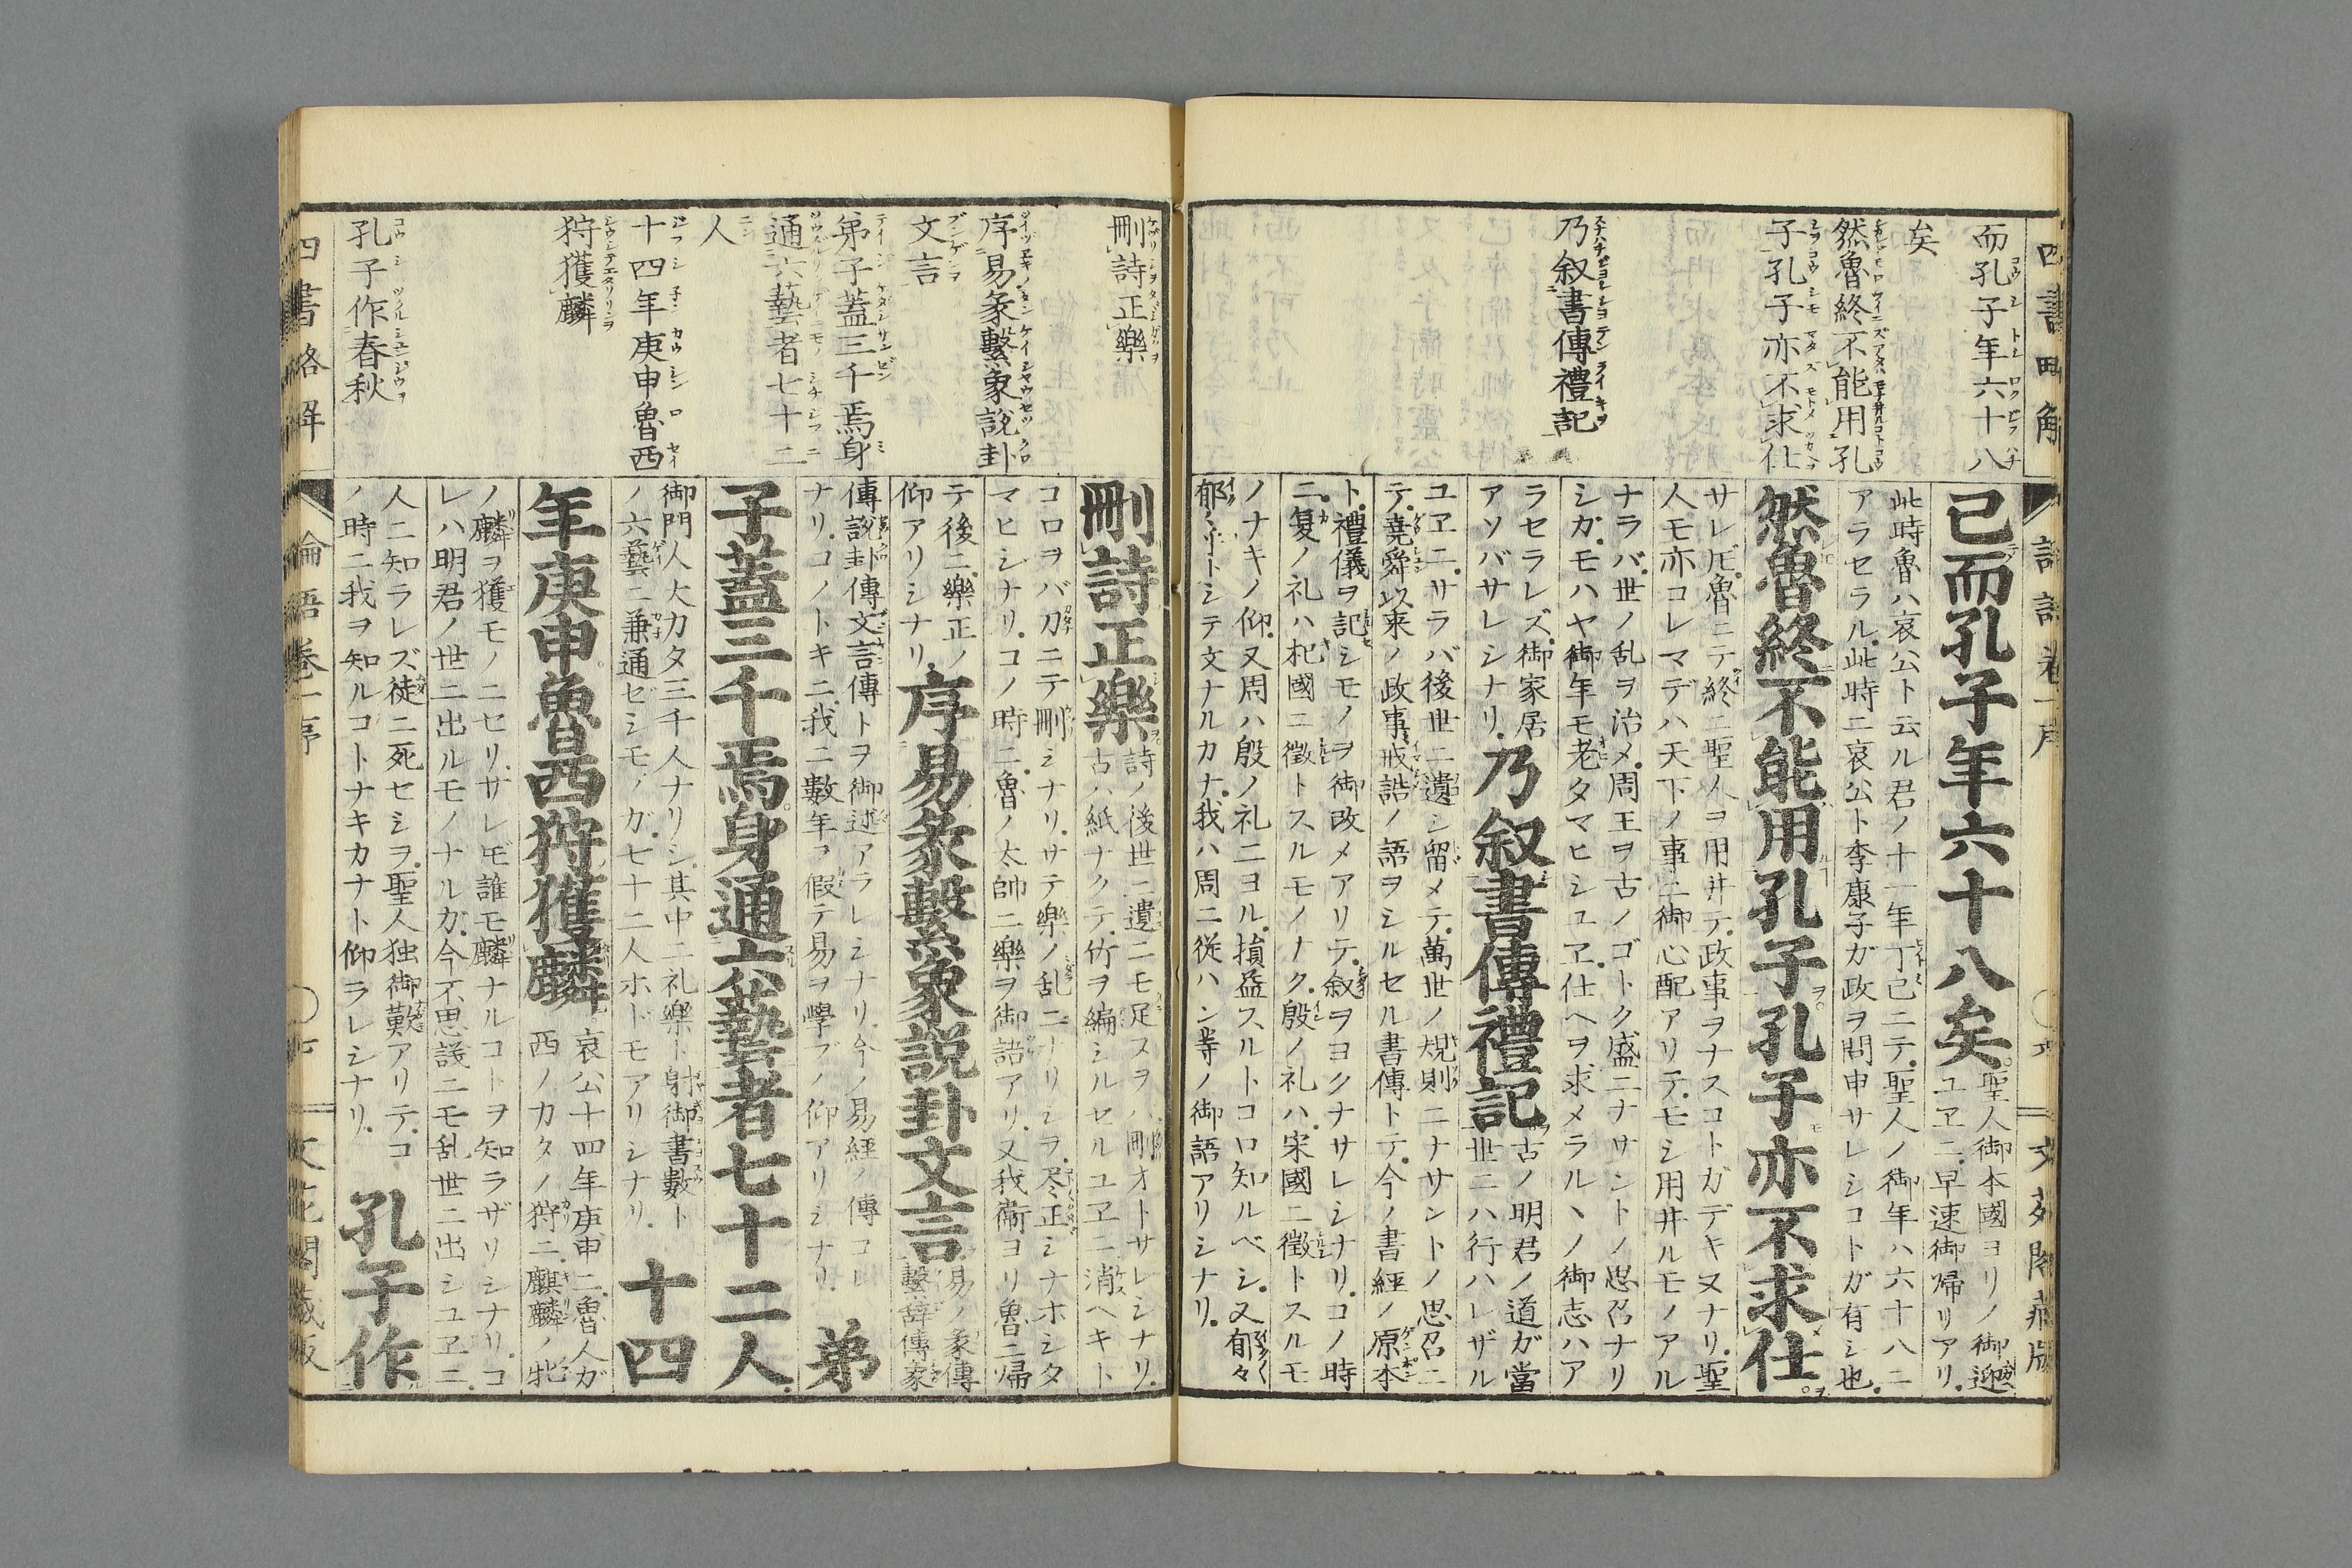 而孔子年六十八
矣
然魯終不能用孔
子孔子亦不求仕
乃叙書傳禮記
已而孔子年六十八矣
聖人御本國ヨリノ御迎
ユヱニ早速御帰リアリ
此時魯ハ哀公ト云ル君ノ十一年丁巳ニテ聖人ノ御年ハ六十八ニ
アラセラル此時ニ哀公ト季康子ガ政ヲ問申サレシコトガ有シ也
然魯終不能用孔子孔子亦不求仕
サレ𪜈魯ニテ終ニ聖人ヲ用井テ政事ヲナスコトガデキヌナリ聖
人モ亦コレマデハ天下ノ事ニ御心配アリテモシ用井ルモノアル
ナラバ世ノ乱ヲ治メ周王ヲ古ノゴトク盛ニナサントノ思召ナリ
シガモハヤ御年モ老タマヒシユヱ仕ヘヲ求メラルヽノ御志ハア
ラセラレズ御家居
アソバサレシナリ
乃叙書傳禮記
古ノ明君ノ道ガ當
世ニハ行ハレザル
ユヱニサラバ後世ニ遺シ留メテ萬世ノ規則ニナサントノ思召ニ
テ堯舜以来ノ政事戒誥ノ語ヲシルセル書傳トテ今ノ書經ノ原本
ト禮儀ヲ記シモノヲ御改メアリテ叙ヲヨクナサレシナリコノ時
ニ夏ノ礼ハ杞國ニ徴トスルモノナク殷ノ礼ハ宋國ニ徴トスルモ
ノナキノ仰又周ハ殷ノ礼ニヨル損益スルトコロ知ルベシ又郁々
郁々乎トシテ文ナルカナ我ハ周ニ従ハン等ノ御語アリシナリ
刪詩正樂
序易彖繫象說卦
文言
弟子蓋三千焉身
通六藝者七十二
人
十四年庚申魯西
狩獲麟
孔子作春秋
刪詩正樂
詩ノ後世ニ遺ニモ足ヌヲハ刪オトサレシナリ
古ハ紙ナクテ竹ヲ編シルセルユヱニ消ヘキト
コロヲバ刀ニテ刪シナリサテ樂ノ乱ニナリシヲ尽正シナホシタ
マヒシナリコノ時ニ魯ノ太師ニ樂ヲ御語アリ又我衞ヨリ魯ニ帰
テ後ニ樂正ノ
仰アリシナリ
序易彖繫象說卦文言
易ノ彖傳
繫辭傳象
傳說卦傳文言傳トヲ御述アラレシナリ今ノ易經ノ傳コレ
ナリコノトキニ我ニ數年ヲ假テ易ヲ學ブノ仰アリシナリ
弟
子蓋三千焉身通六藝者七十二人
御門人大カタ三千人ナリシ其中ニ礼樂ト射御書數ト
ノ六藝ニ兼通ゼシモノガ七十二人ホドモアリシナリ
十四
年庚申魯西狩獲麟
哀公十四年庚申ニ魯人ガ
西ノカタノ狩ニ麒麟ノ牝
ノ麟ヲ獲モノニセリサレ𪜈誰モ麟ナルコトヲ知ラザリシナリコ
レハ明君ノ世ニ出ルモノナルガ今不思議ニモ乱世ニ出シユヱニ
人ニ知ラレズ徒ニ死セシヲ聖人独御歎アリテコ
ノ時ニ我ヲ知ルコトナキカナト仰ラレシナリ
孔子作
四書略解
論語卷一序